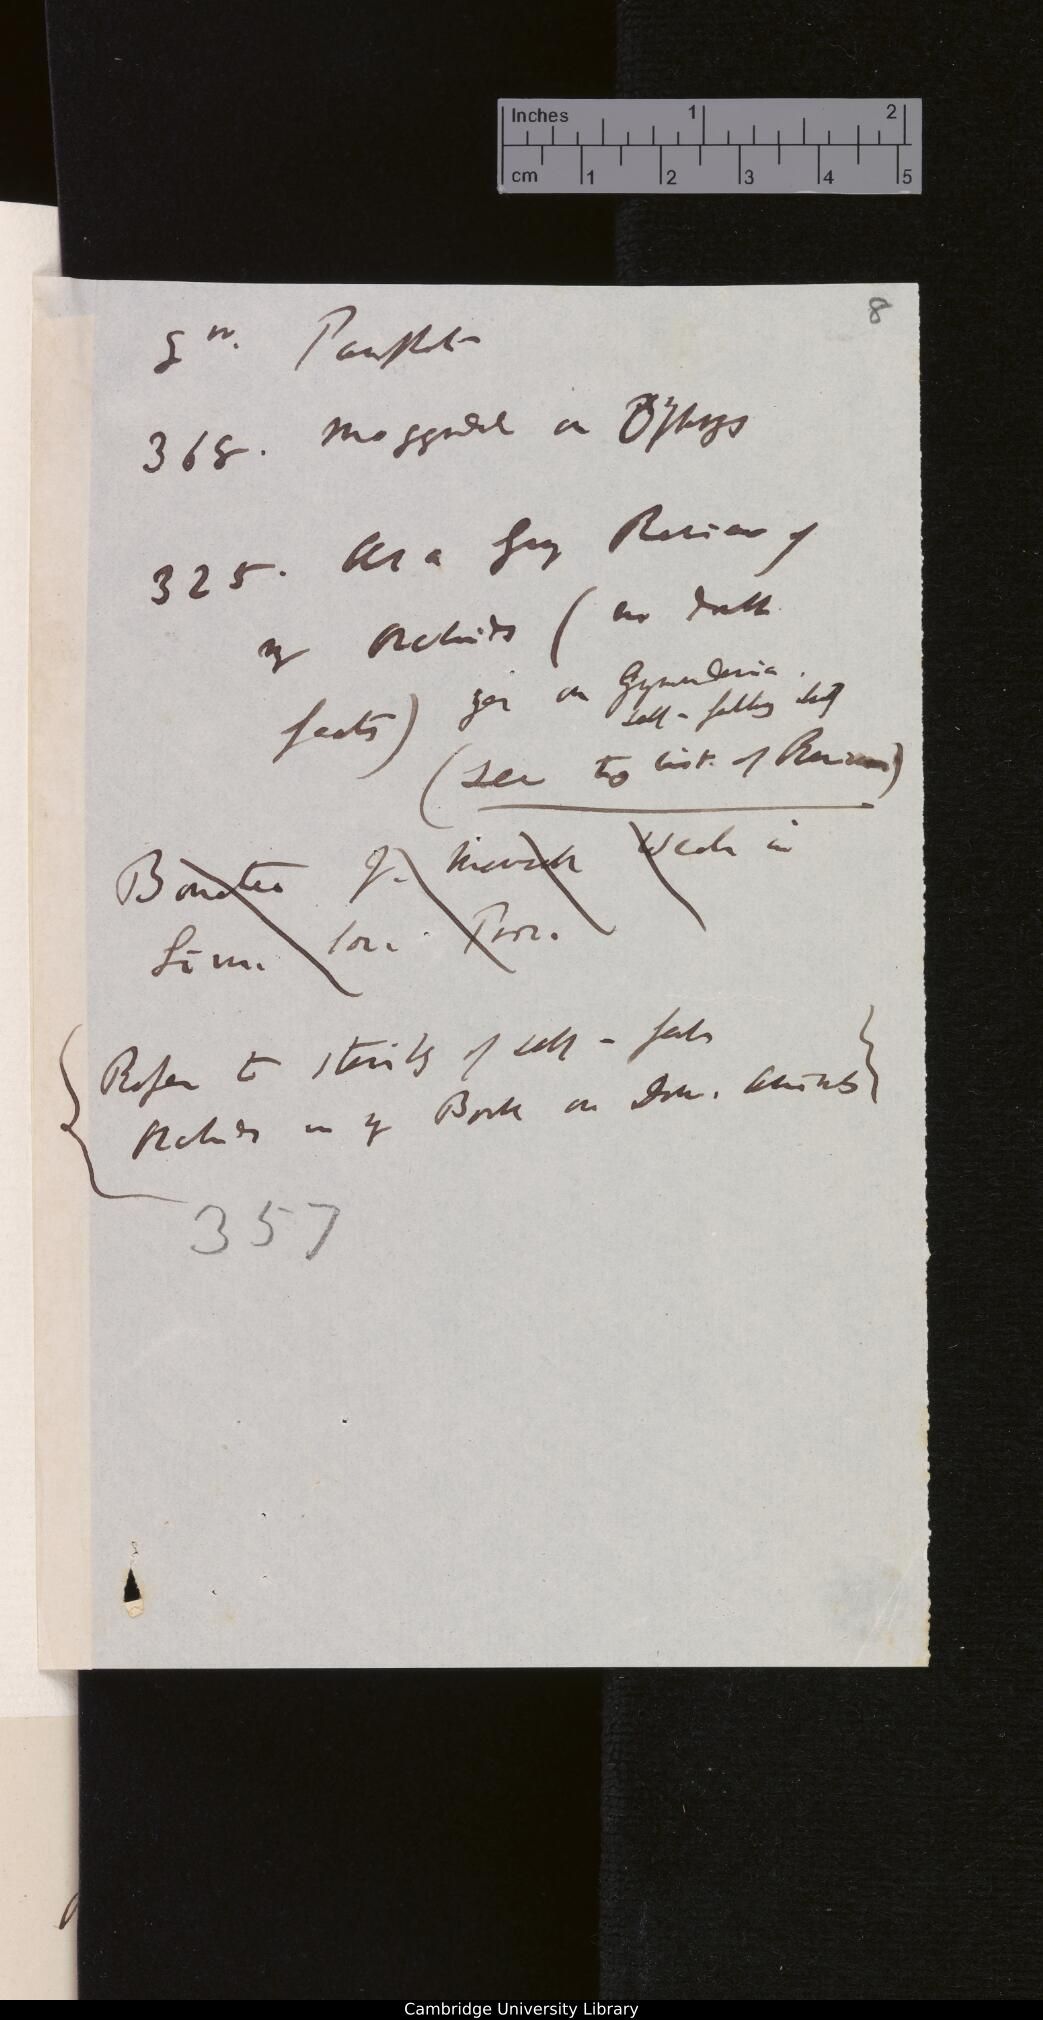 Inches 1 2
cm 1 2 3 4 5
8
Pamphlets
368. Moggridge on Ophrys
325. Asa Gray Review of
my Orchids (no doubt
facts) yes on Gymnadenia.
self-fertility
(see two list of Reviews)
Bonatea J. Mansel Weale in
Linn. Soc. Proc.
Refer to sterility of self-fert
Orchids in my Book on Dom. Animals
357
Cambridge University Library